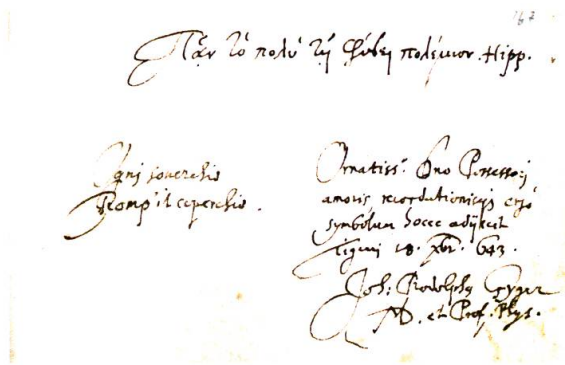 167
Πᾶν τὸ πολὺ τῇ φύσει πολέμιον. Hipp.
Ogni soverchio
Romp' il coperchio.
Ornatiss.º Dno Possessori
amoris recordationisq ergò
symbolum hocce adijecit
Tiguri 18. Xbr. 643.
Joh: Rodolph Gyger
MD. et Prof. Phys.